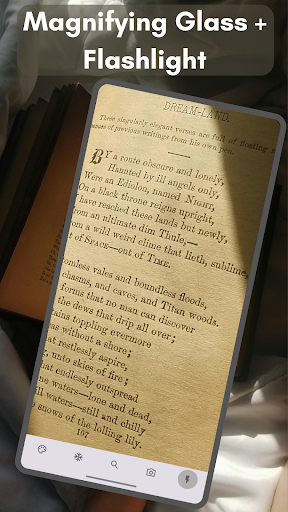 Magnifying Glass +
Flashlight
DREAM-LAND.
These singularly elegant verses are full of floating
of previous writings from his own pen.
BY a route obscure and lonely,
Haunted by ill angels only,
Were an Eidolon, named NIGHT,
On a black throne reigns upright,
have reached these lands but newly,
om an ultimate dim Thule,—
om a wild weird clime that lieth, sublime,
t of SPACE—out of TIME.
omless vales and boundless floods,
chasms, and caves, and Titan woods.
forms that no man can discover
the dews that drip all over;
tains toppling evermore
as without a shore;
that restlessly aspire,
g, unto skies of fire;
that endlessly outspread
ne waters—lone and dead,
ll waters—still and chilly
snows of the lolling lily.
107